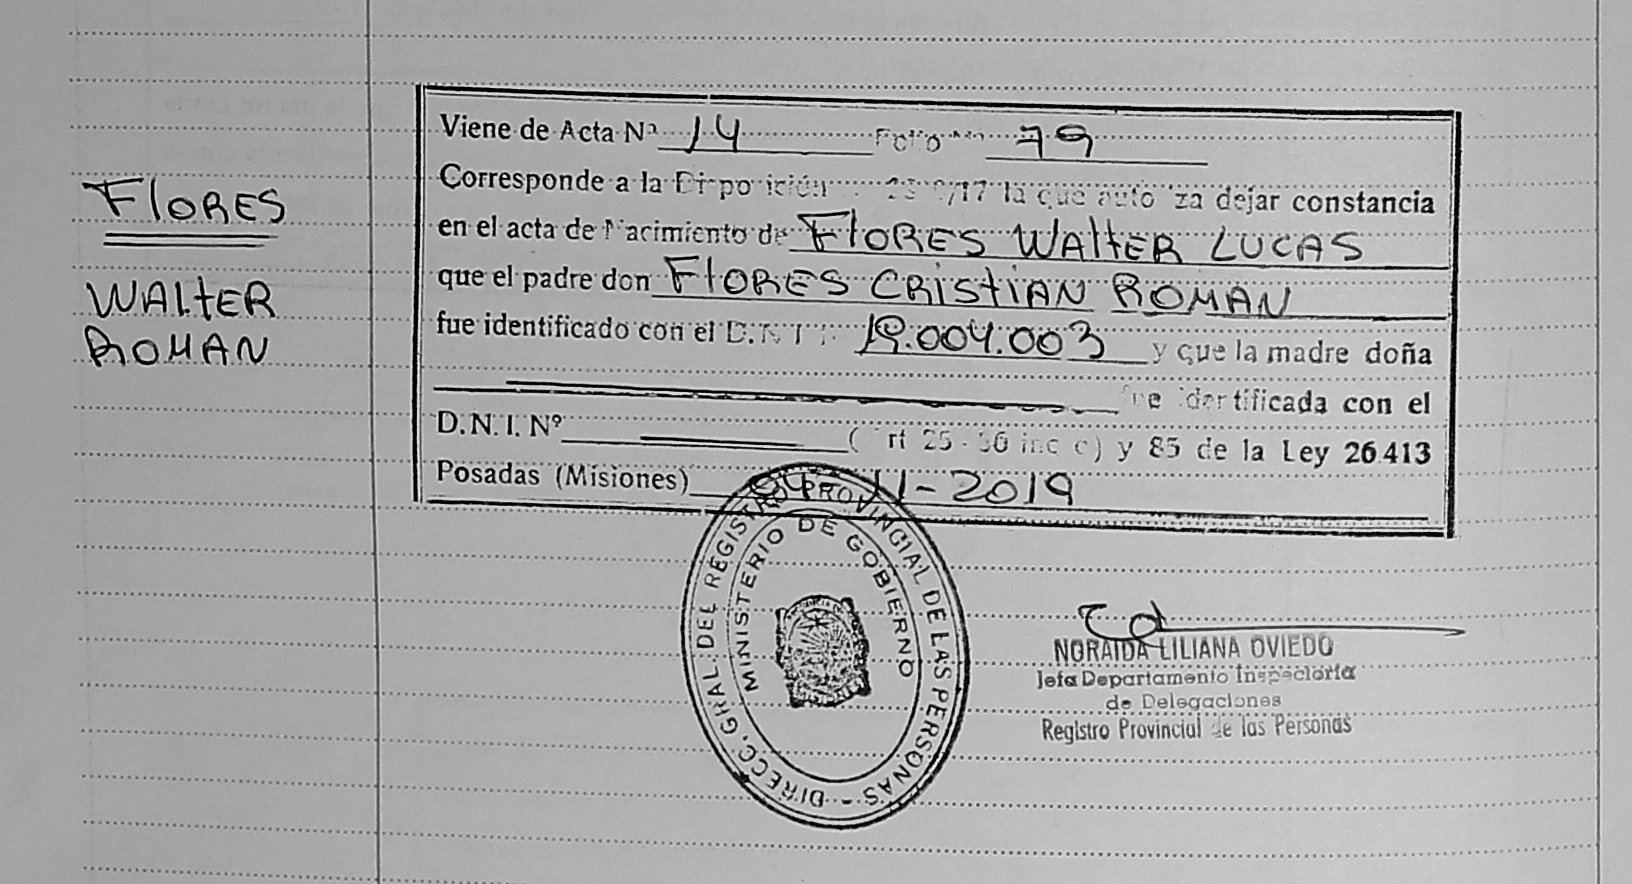 FLORES
WALTER
ROMAN
Viene de Acta Nº 14 Folio Nº 79
Corresponde a la Disposición /17 la que autoriza dejar constancia
en el acta de Nacimiento de FLORES WALTER LUCAS
que el padre don FLORES CRISTIAN ROMAN
fue identificado con el D.N.I. 19.004.003 y que la madre doña
fue identificada con el
D.N.I. Nº (Art 25 - 30 inc c) y 85 de la Ley 26.413
Posadas (Misiones) 04-11-2019
DIRECC. GRAL. DEL REGISTRO PROVINCIAL DE LAS PERSONAS -
MINISTERIO DE GOBIERNO
NORAIDA LILIANA OVIEDO
Jefa Departamento Inspectoría
de Delegaciones
Registro Provincial de las Personas